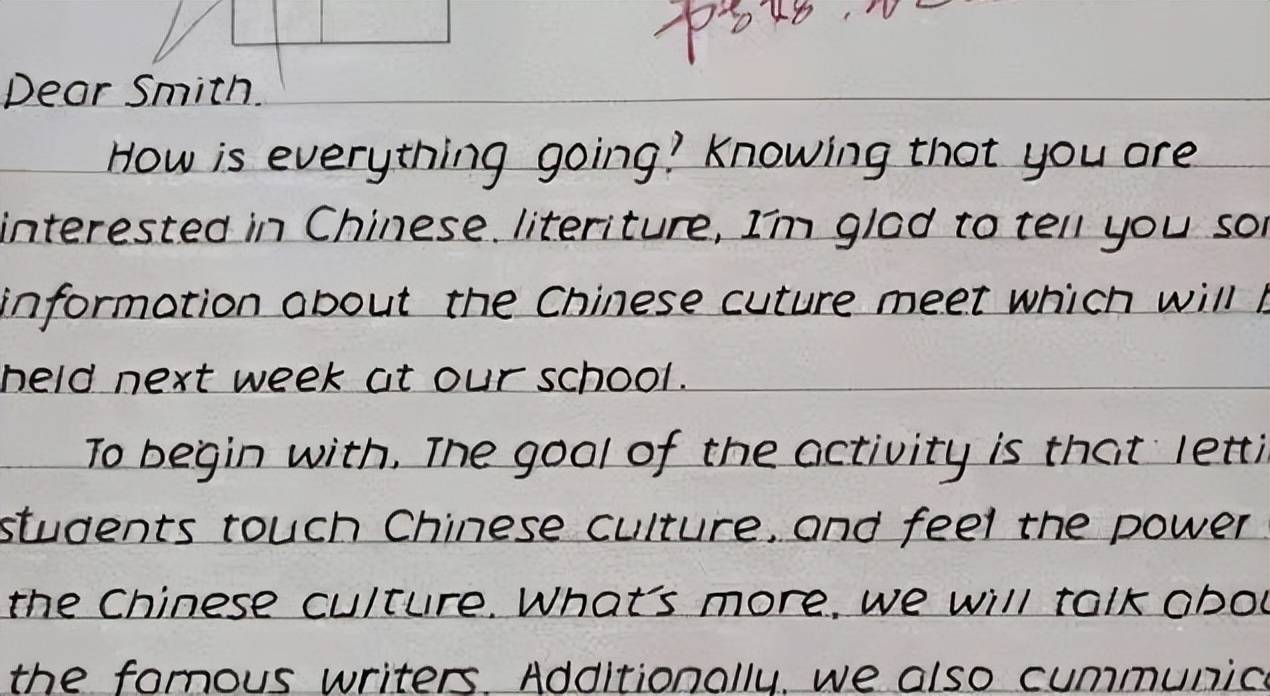 Dear Smith.
How is everything going? Knowing that you are
interested in Chinese. literiture, I'm glad to tell you
information about the Chinese cuture meet which will
held next week at our school.
To begin with. The goal of the activity is that
students touch Chinese culture, and feel the power
the Chinese culture. What's more, we will talk
the famous writers. Additionally, we also